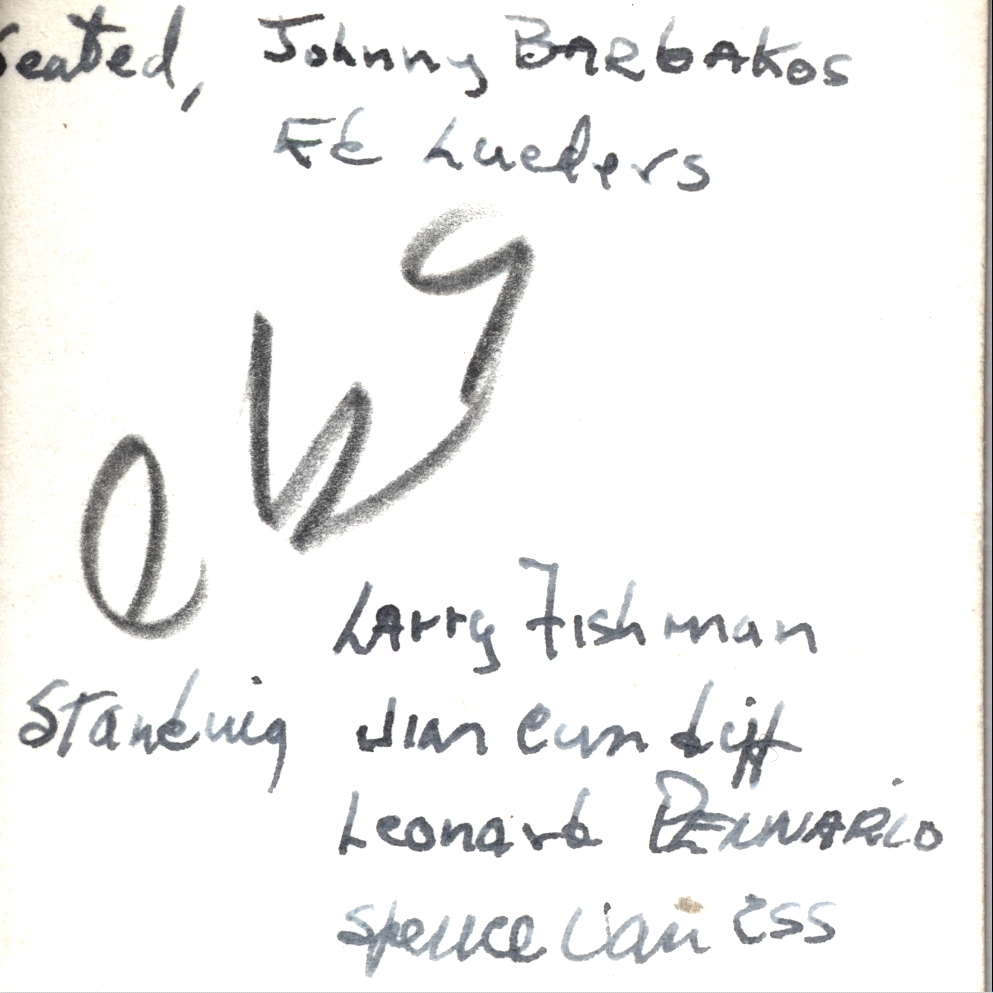 Seated, Johnny BARBAKOS
Ed Lueders
Larry Fishman
Standing Jim Cundiff
Leonard PENNARIO
Spence Van ESS